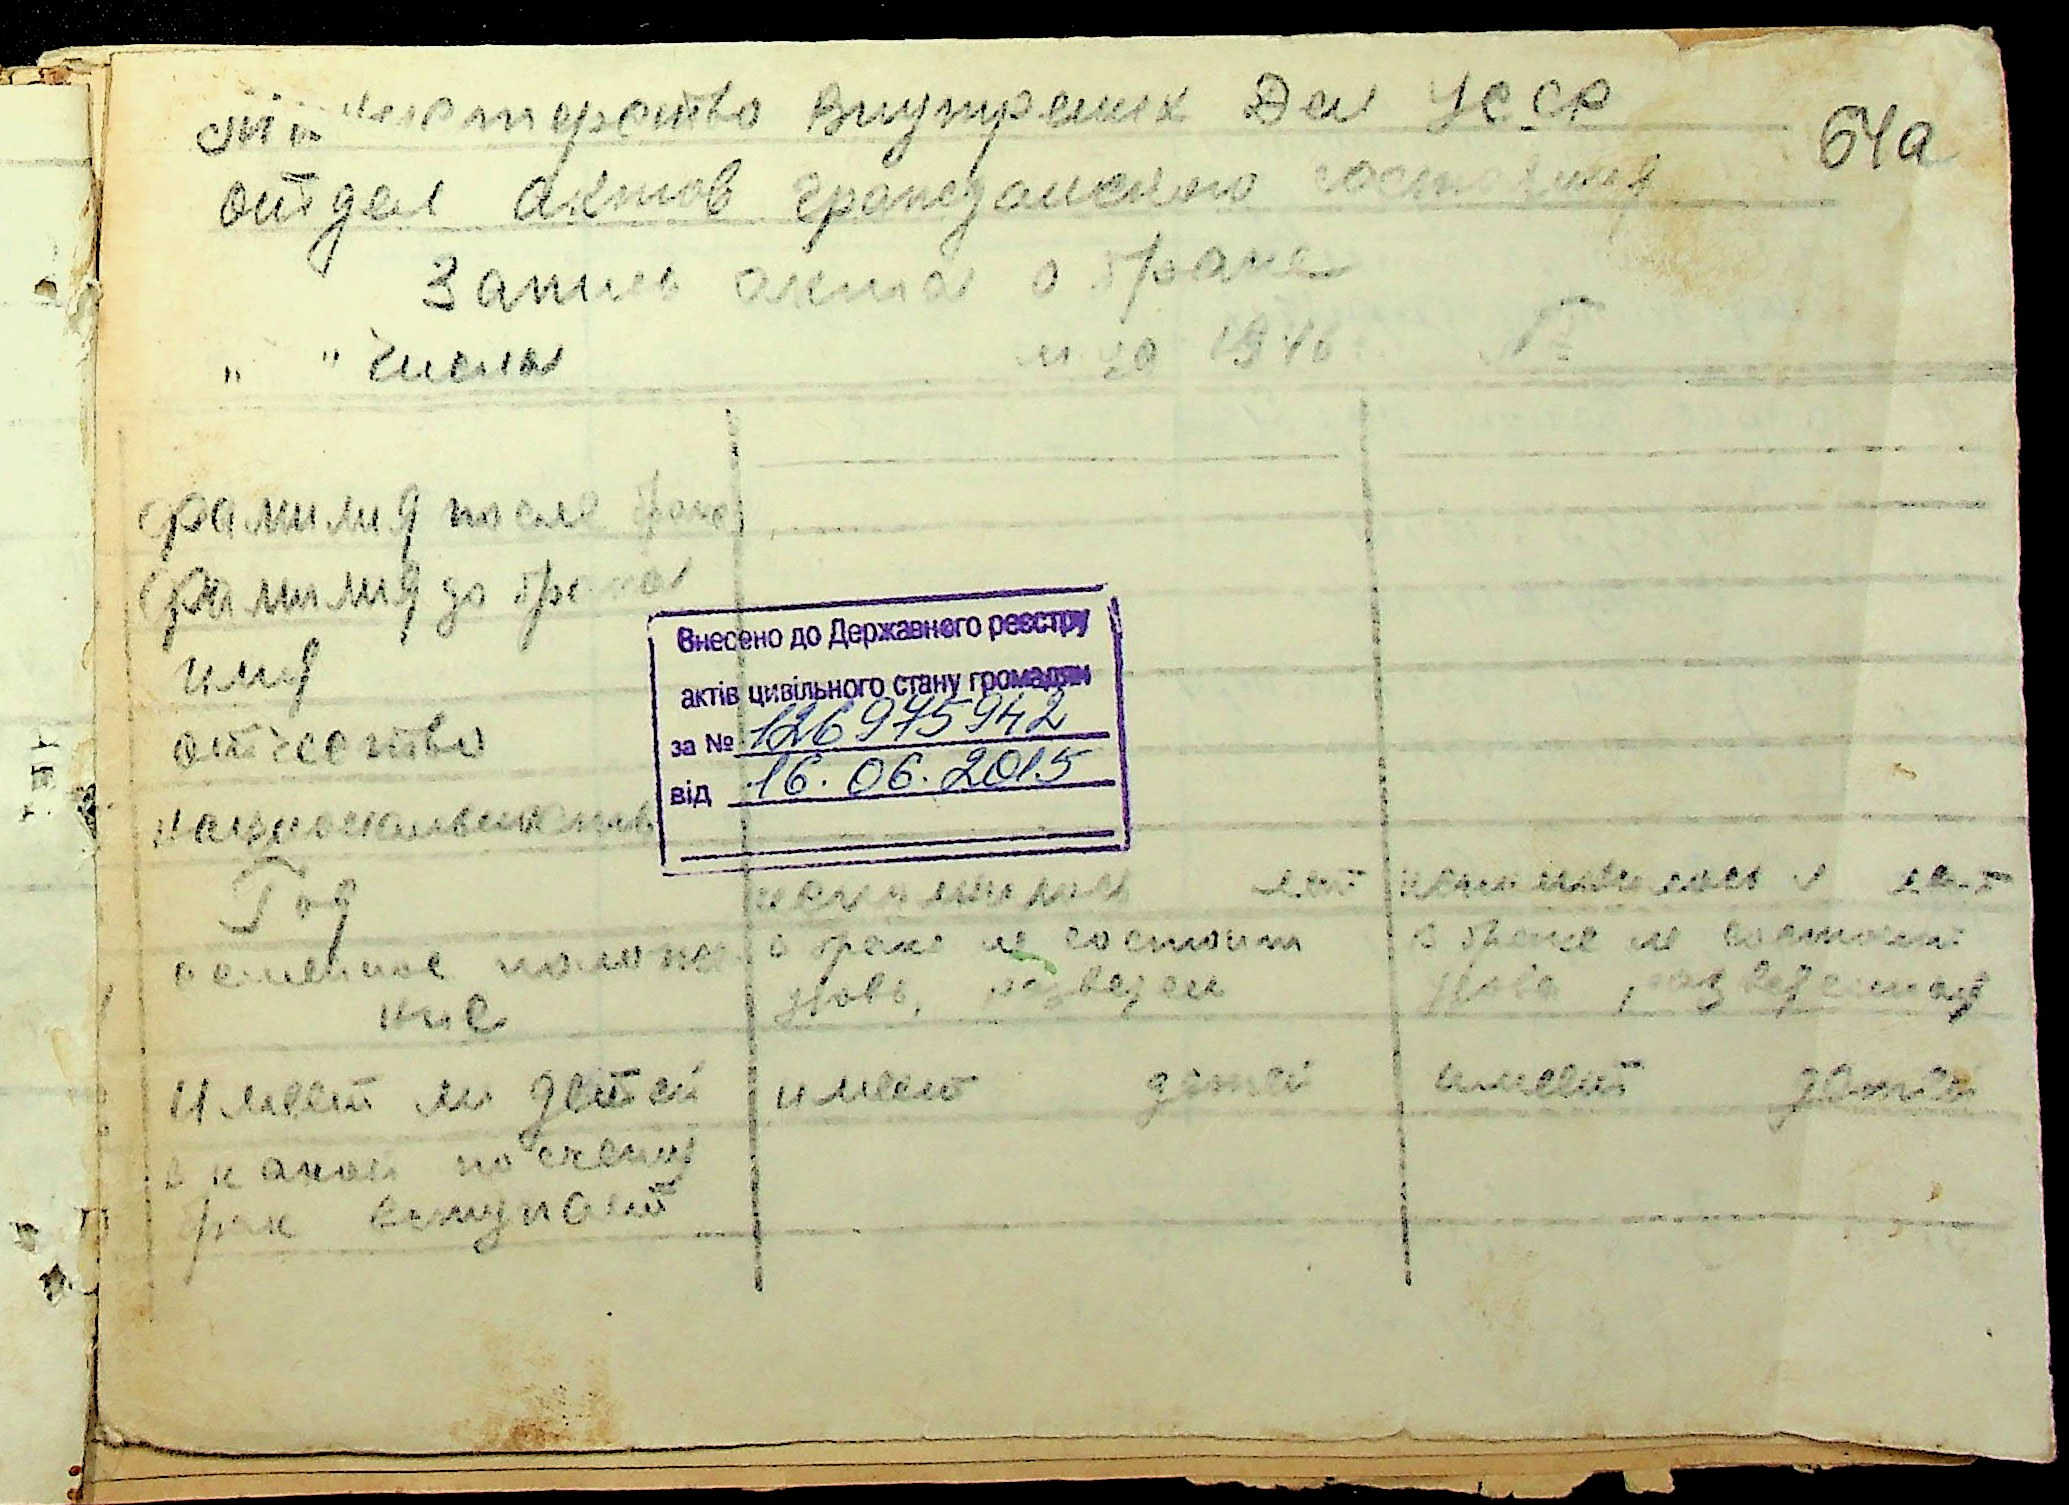 Министерство Внутрених Дел УССР
64а
отдел актов гражданского состояния
Запись акта о браке
" " числа м-ца 1946 №
фамилия после брака
фамилия до брака
имя
отчество
Внесено до Державного реєстру
актів цивільного стану громадян
за № 126975942
від 16.06.2015
национальность
Год исполнилось лет исполнилось лет
семейное положе в браке не состоит в браке не состоит
ние вдов, разведен вдова, разведенная
Имеет ли детей имеет детей имеет детей
в какой по счету
брак вступает